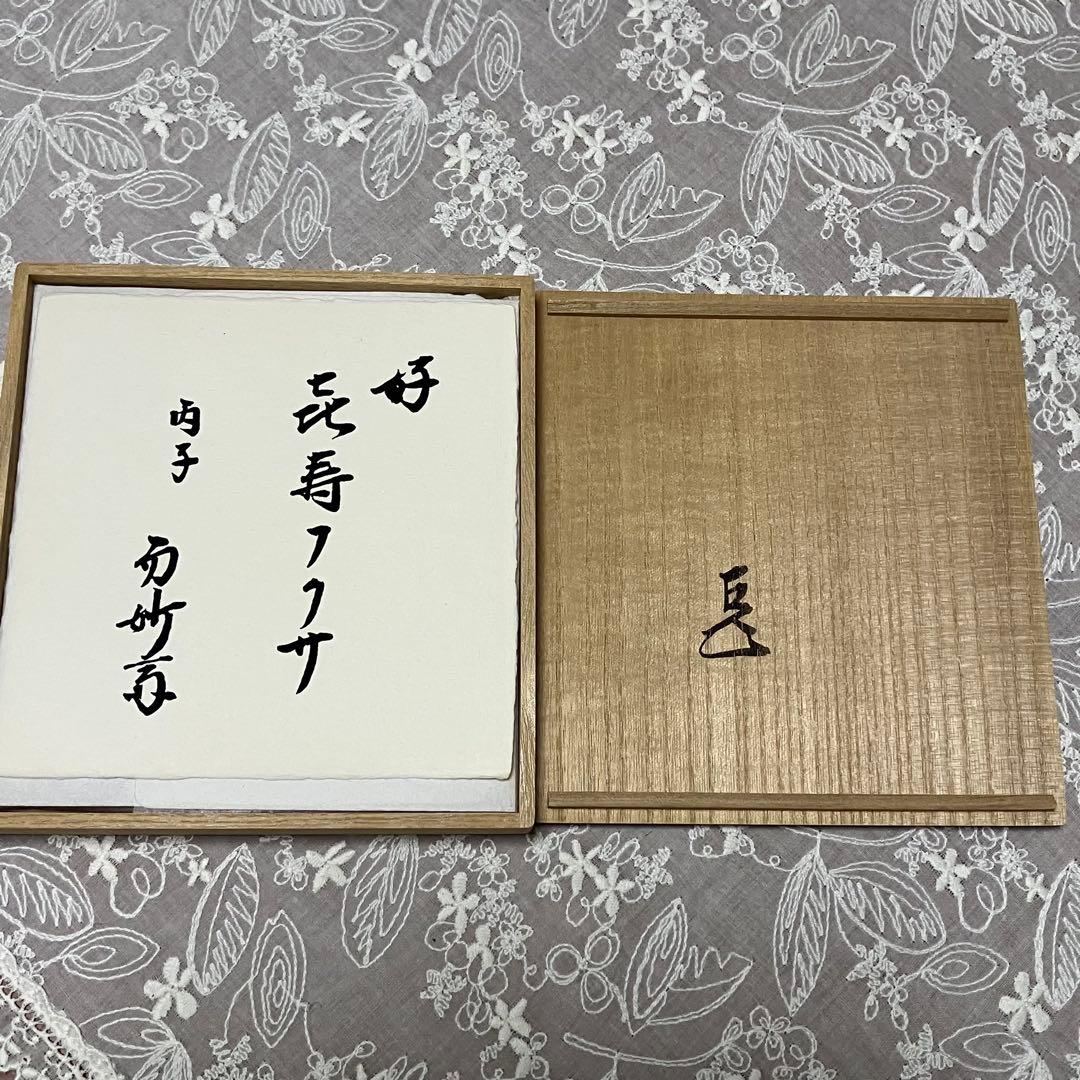 好
㐂寿フクサ
丙子
而妙斎